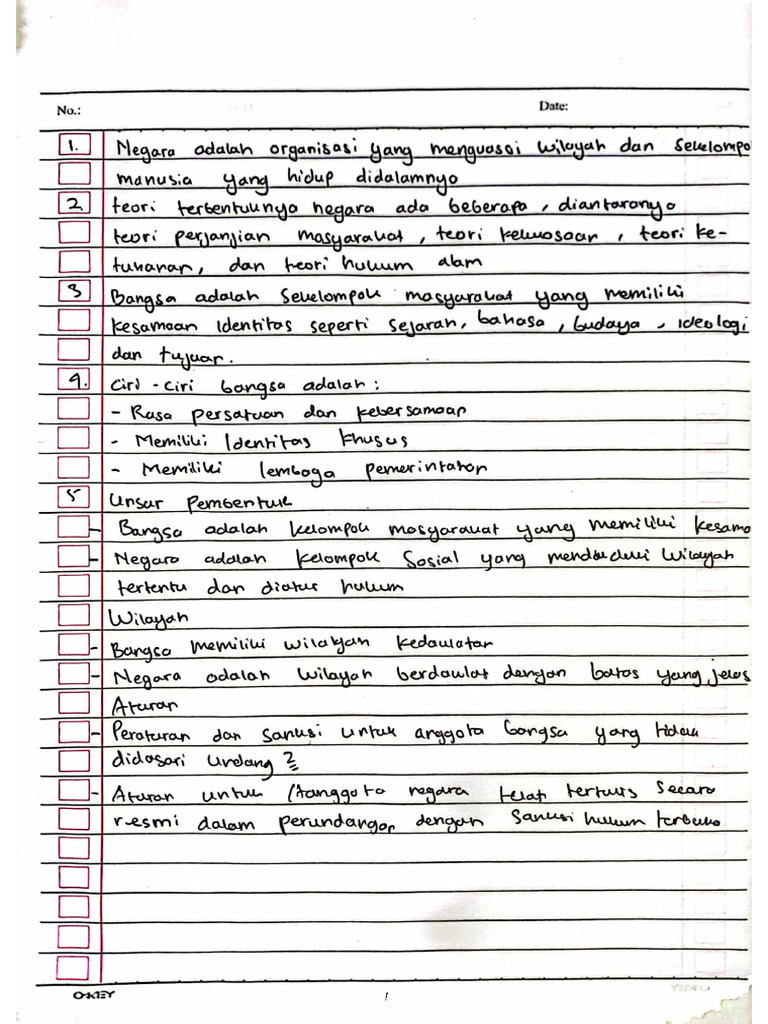 No.:
Date:
1. Negara adalah organisasi yang menguasai wilayah dan sekelompo
manusia yang hidup didalamnya
2 teori terbentuknya negara ada beberapa, diantaranya
teori perjanjian masyarakat, teori kekuasaan, teori ke-
tuhanan, dan teori hukum alam
3 Bangsa adalah sekelompok masyarakat yang memiliki
kesamaan identitas seperti sejarah, bahasa, budaya, ideologi
dan tujuan.
4. Ciri-ciri bangsa adalah:
- Rasa persatuan dan kebersamaan
- Memiliki Identitas khusus
- Memiliki lembaga pemerintahan
5 Unsur Pembentuk
- Bangsa adalah kelompok masyarakat yang memiliki kesama
- Negara adalah kelompok Sosial yang menduduki wilayah
tertentu dan diatur hukum
Wilayah
- Bangsa memiliki wilayah kedaulatan
- Negara adalah wilayah berdaulat dengan batas yang jelas
Aturan
- Peraturan dan sanksi untuk anggota bangsa yang tidak
didasari undang2
- Aturan untuk anggota negara telah tertulis secara
resmi dalam perundangan dengan sanksi hukum terbuka
OKEY